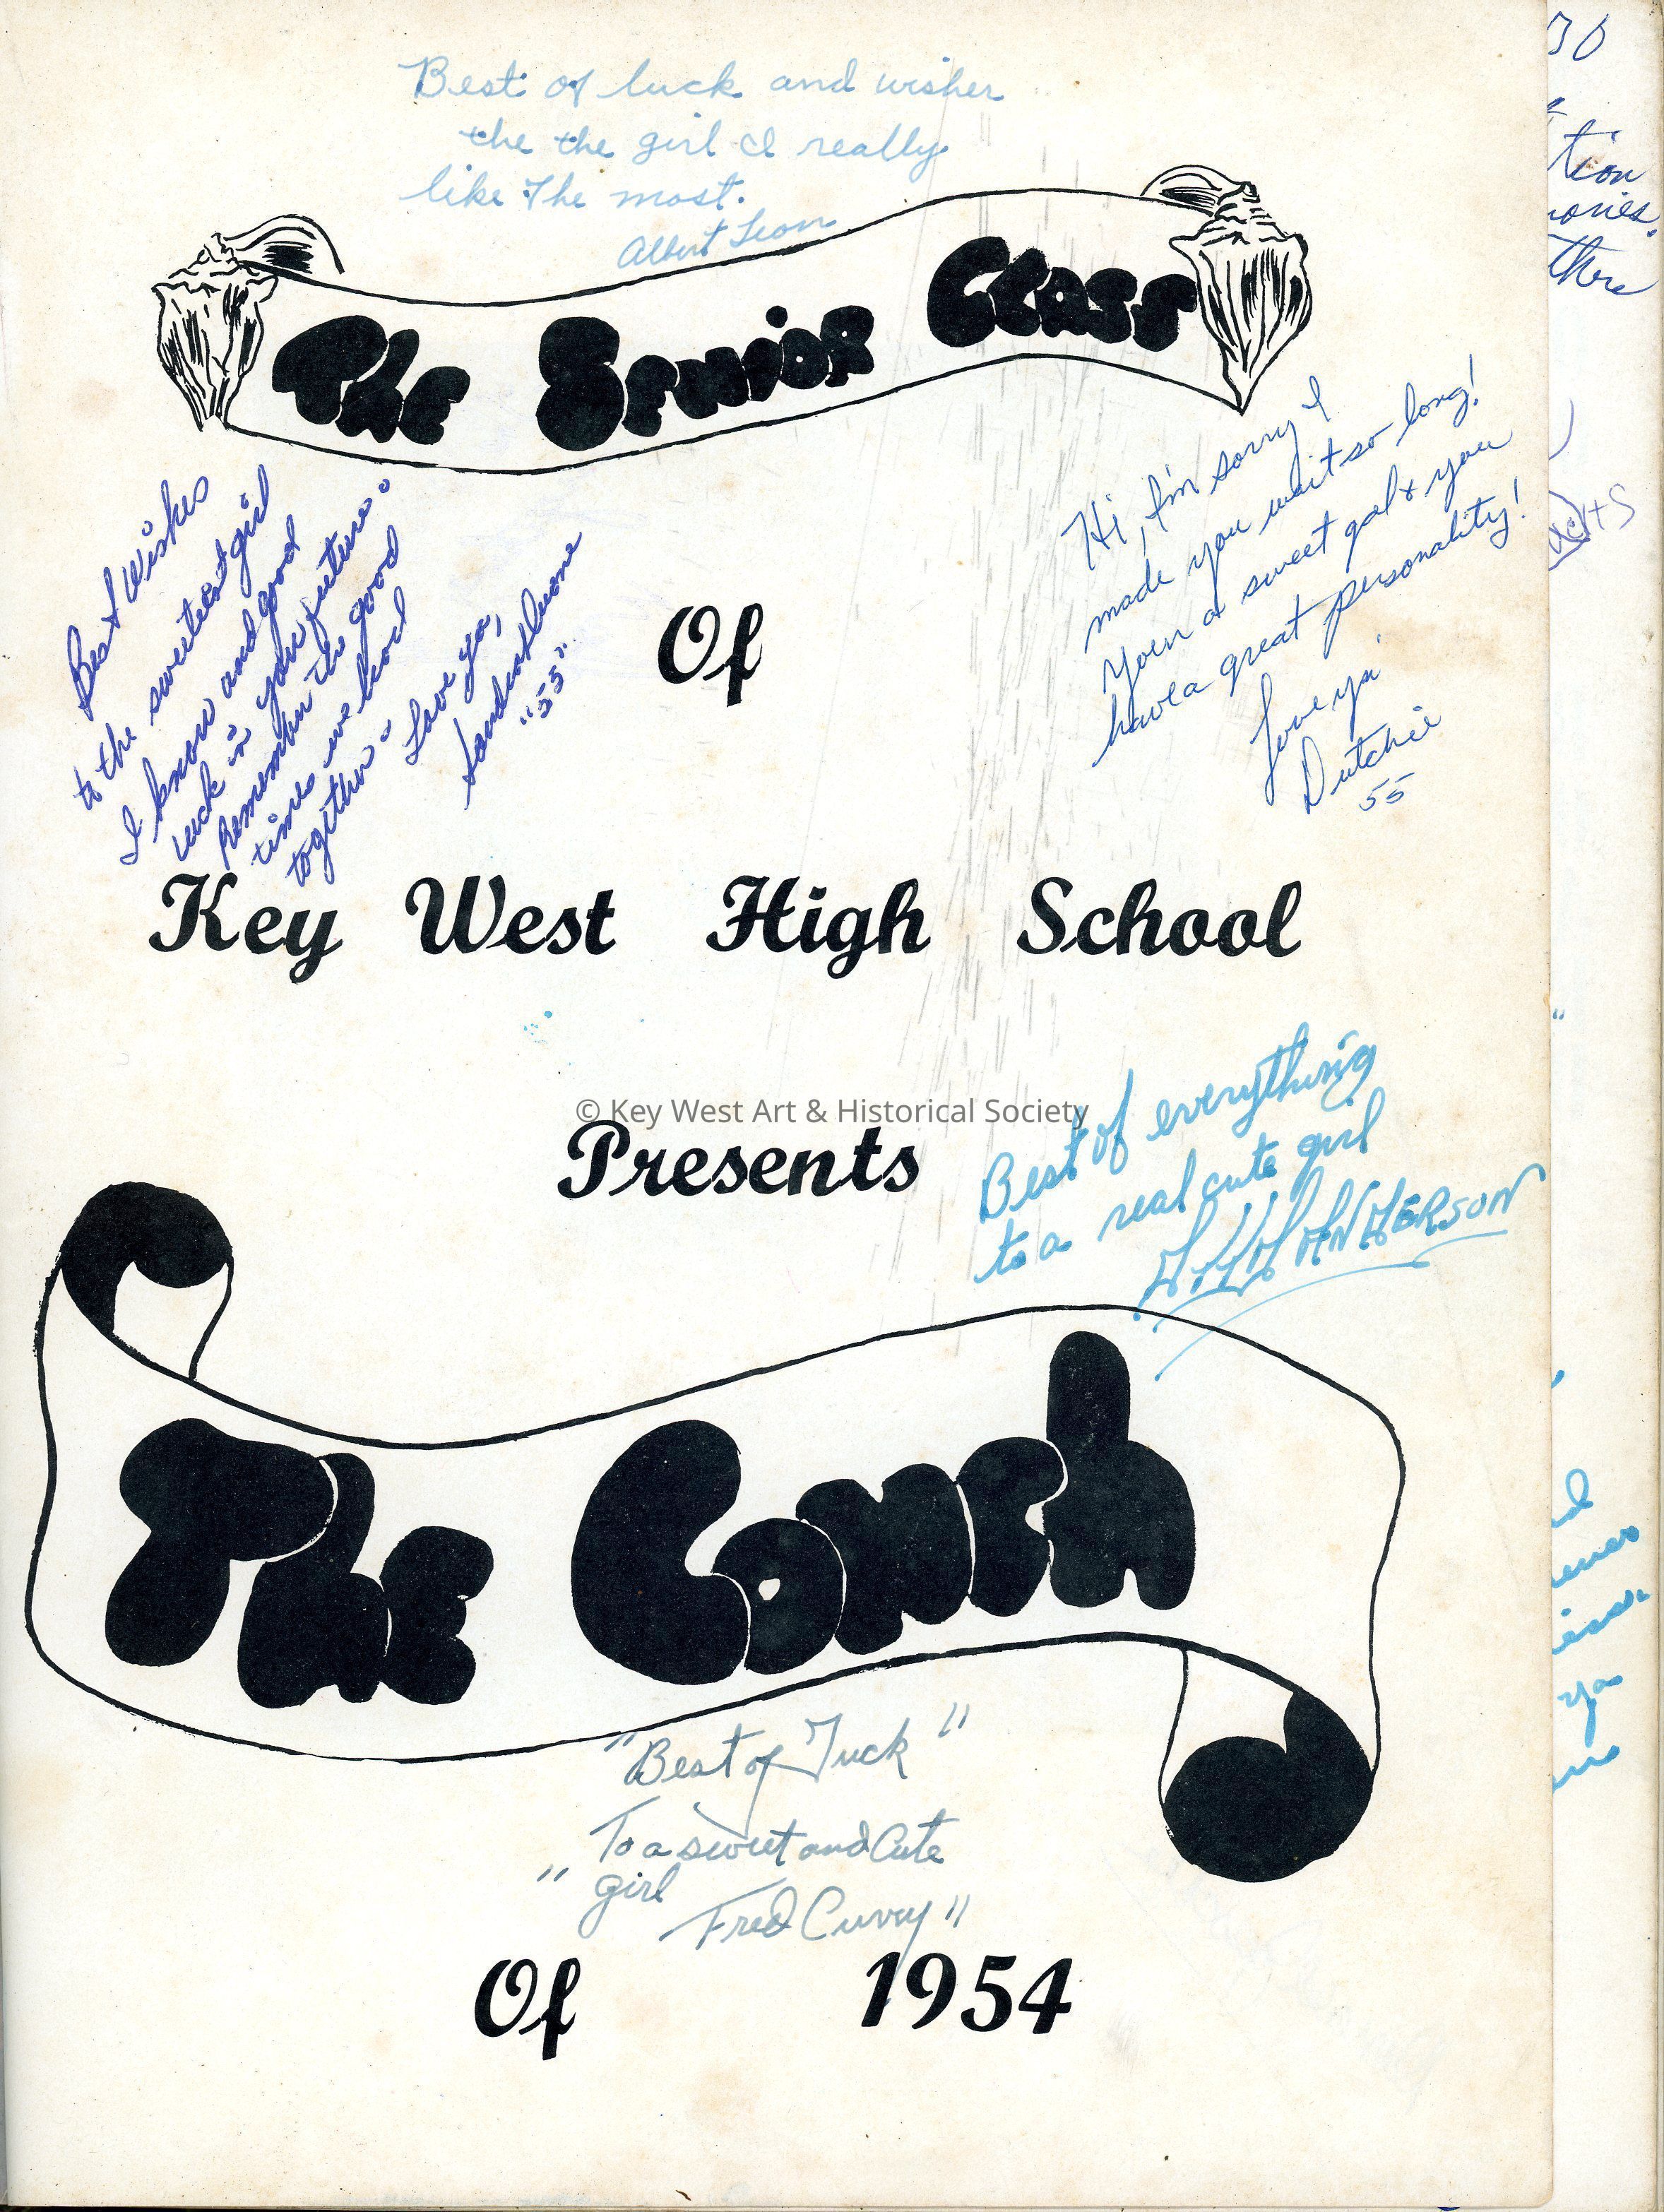 Best of luck and wishes
the the girl I really
like the most.
Albert Leon
The Senior Class
Best Wishes
to the sweetest girl
I know and good
luck in your future.
Remember the good
times we had
together. Love ya,
"55"
Hi, I'm sorry I
made you wait so long!
Your a sweet gal & you
have a great personality!
Love ya
Dutchie
55
Of
Key West High School
© Key West Art & Historical Society
Presents
Best of everything
to a real cute girl
ANDERSON
The Conch
"Best of Luck"
To a sweet and Cute
"girl
Fred Curry"
Of 1954
tion